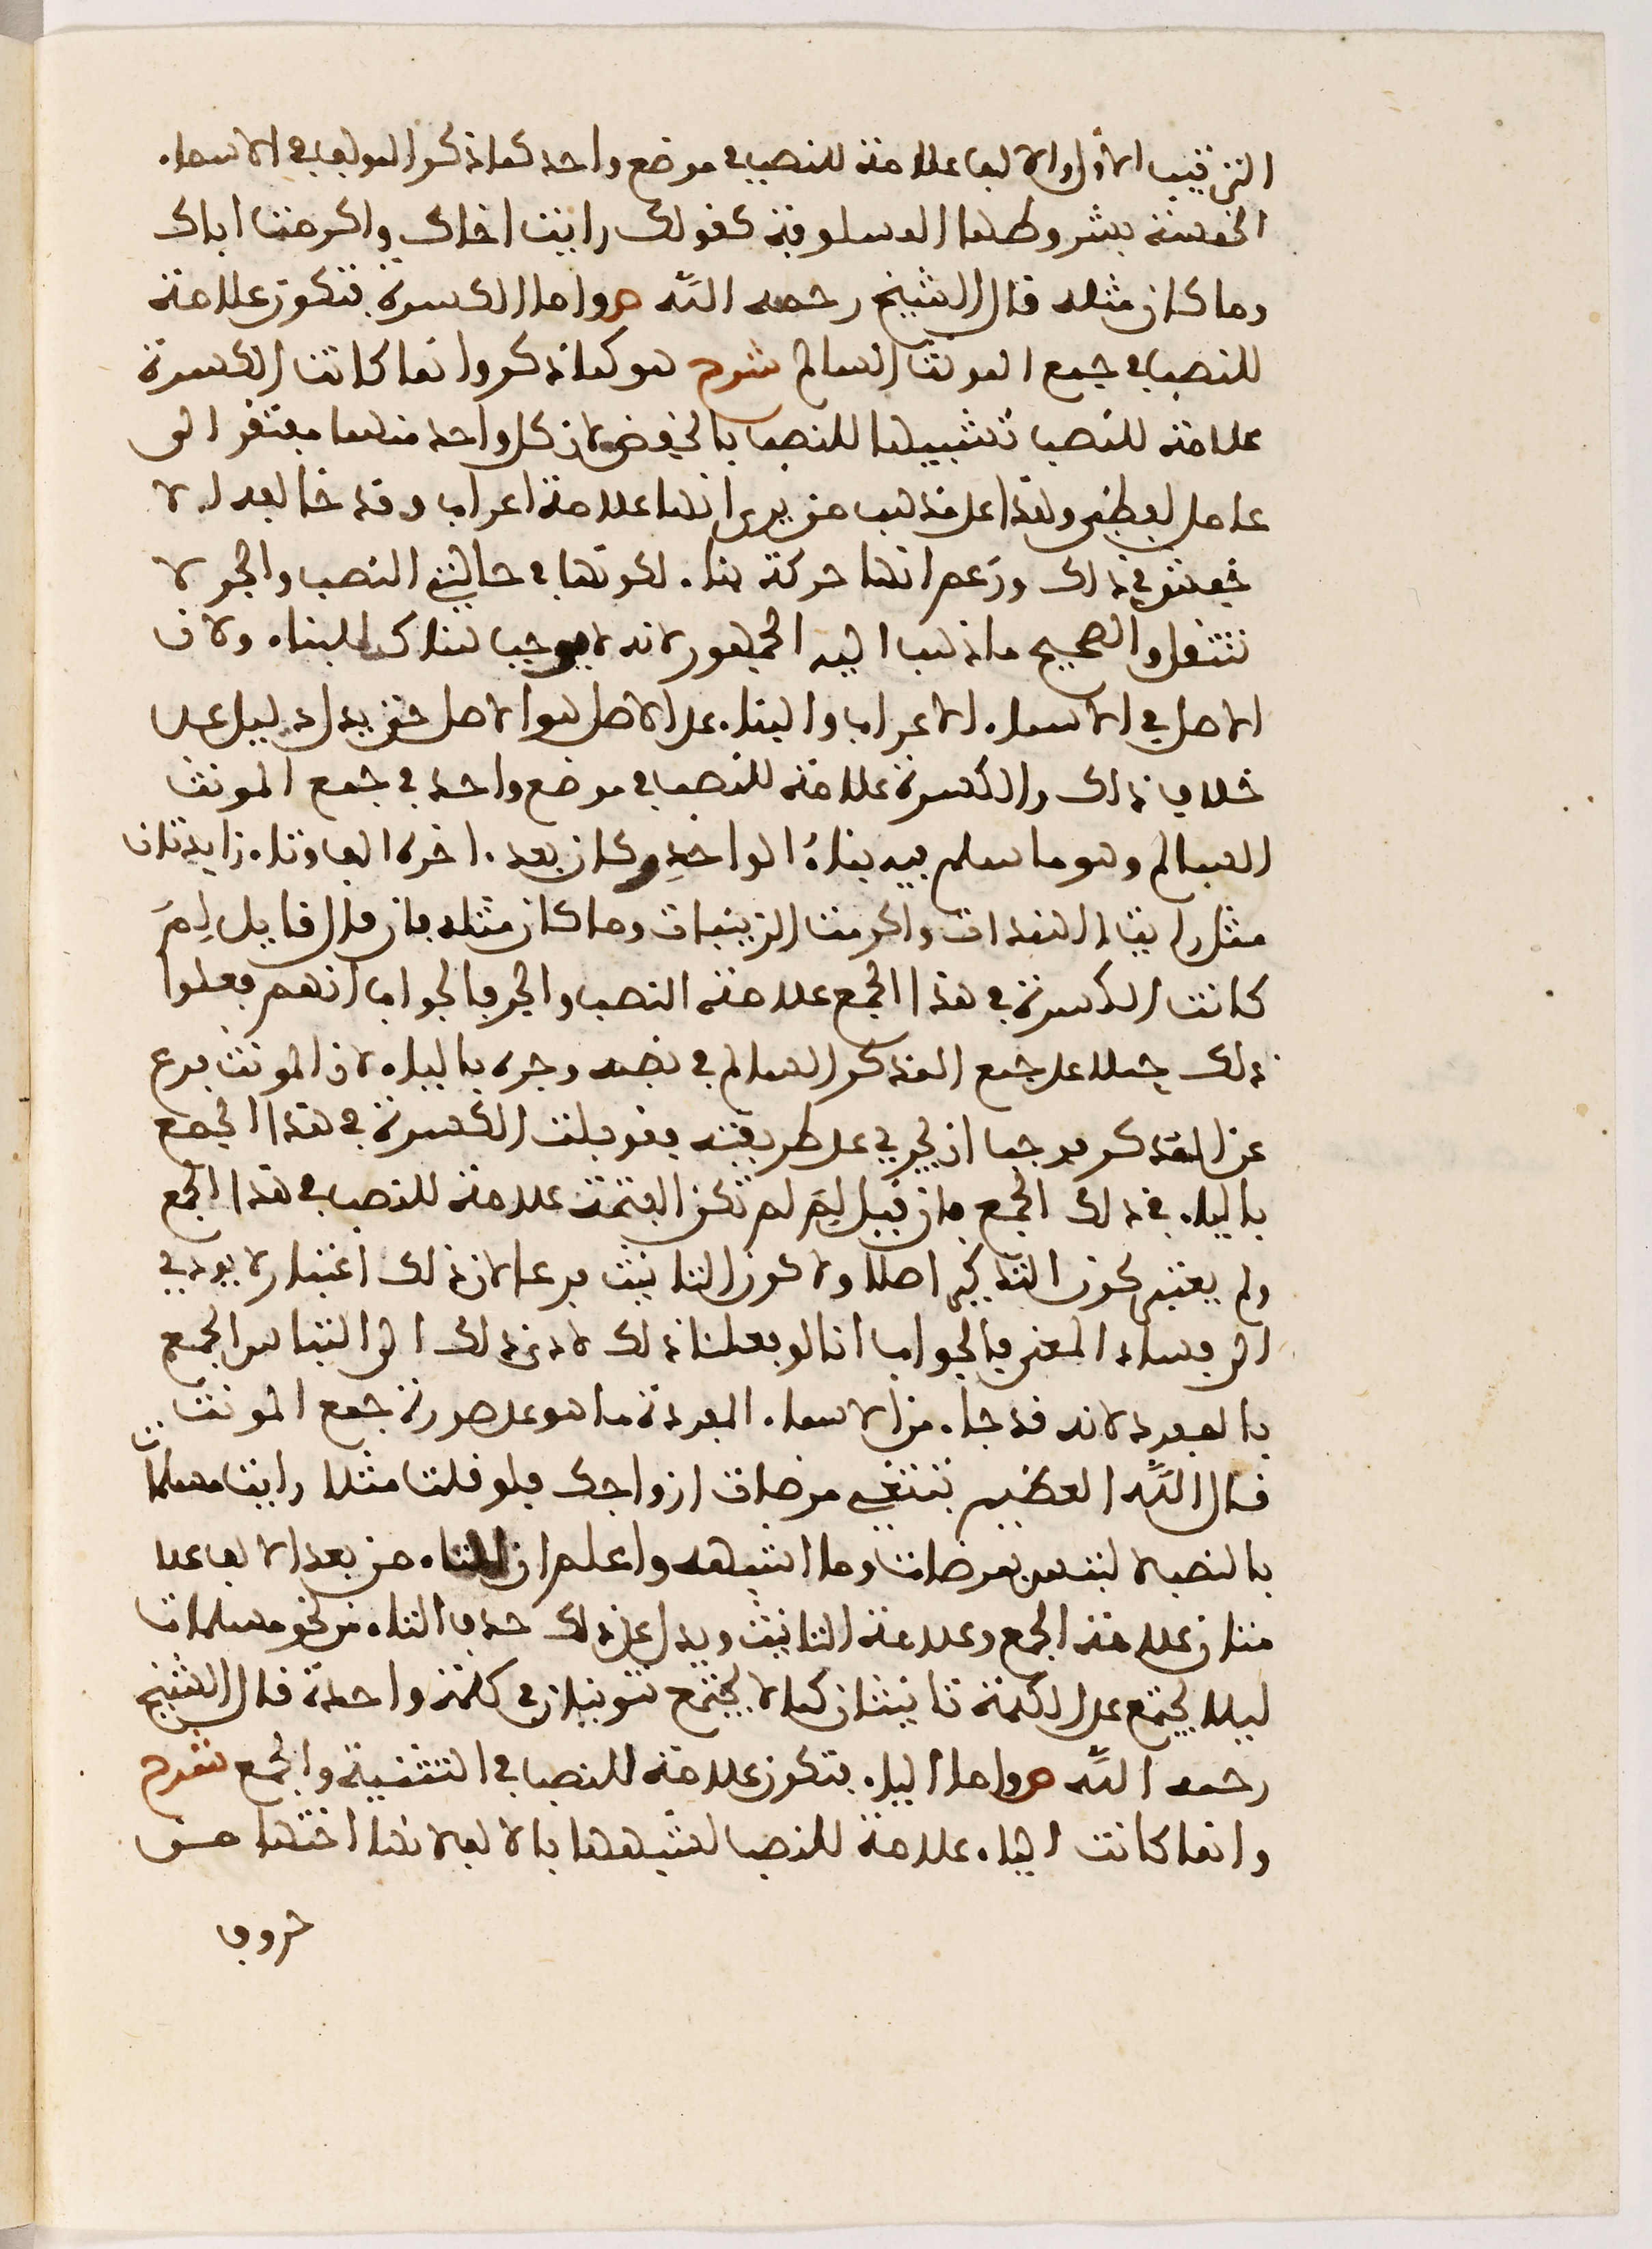 الترتيب الاول والالف علامة للنصب في موضع واحد كما ذكر المولف في الاسماء
الخمسة بشروطها المسلوفة كقولك رايت اخاك واكرمت اباك
وما كان مثله قال الشيخ رحمه الله ص واما الكسرة فتكون علامة
للنصب في جمع المونث السالم شرح هو كما ذكر وانما كانت الكسرة
علامة للنصب تشبيها للنصب بالخفض لان كل واحد منهما مفتقر الى
عامل لفظي وهذا على مذهب من يرى انها علامة اعراب وقد خالفه الا
خفش في ذلك وزعم انها حركة بناء لكونها في حالتي النصب والجر لا
تنتقل والصحيح ما ذهب اليه الجمهور لانه لا موجب هناك للبناء ولان
الاصل في الاسماء الاعراب والبناء على الاصل هو الاصل حتى يدل دليل على
خلاف ذلك والكسرة علامة للنصب في موضع واحد في جمع المونث
السالم وهو ما سلم فيه بناء الواحد وكان بعد اخره الف وتاء زايدتان
مثل رايت الهندات واكرمت الزينبات وما كان مثله فان قال قايل لِمَ
كانت الكسرة في هذا الجمع علامة النصب والجر فالجواب انهم فعلوا
ذلك حملا على جمع المذكر السالم في نصبه وجره بالياء لان المونث فرع
عن المذكر فوجب ان يجري على طريقته فقوبلت الكسرة في هذا الجمع
بالياء في ذلك الجمع فان قيل لِمَ لم تكن الفتحة علامة للنصب في هذا الجمع
ولم يعتبر كون التذكير اصلا ولا كون التانيث فرعا لان ذلك اعتبار لا يودي
الى فساد المعنى فالجواب انا لو فعلنا ذلك لادى ذلك الى التباس الجمع
بالمفرد لانه قد جاء من الاسماء المفردة ما هو على صورة جمع المونث
قال الله العظيم تبتغي مرضات ازواجك فلو قلت مثلا رايت مسلمات
بالنصب لالتبس بمرضات وما اشبهه واعلم ان التاء من بعد الالف علا
متان علامة الجمع وعلامة التانيث ويدل على ذلك حذف التاء من نحو مسلمات
ليلا يجتمع على الكلمة تانيثان كما لا يجتمع تنوينان في كلمة واحدة قال الشيخ
رحمه الله ص واما الياء فتكون علامة للنصب في التثنية والجمع شرح
وانما كانت الياء علامة للنصب لشبهها بالالف لانها اختها من
حروف